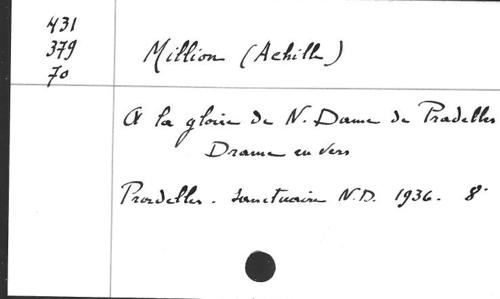 431
379
70
Million (Achille)
A la gloire de N. Dame de Pradelles
Drame en vers
Pradelles. Sanctuaire N.D. 1936. 8°